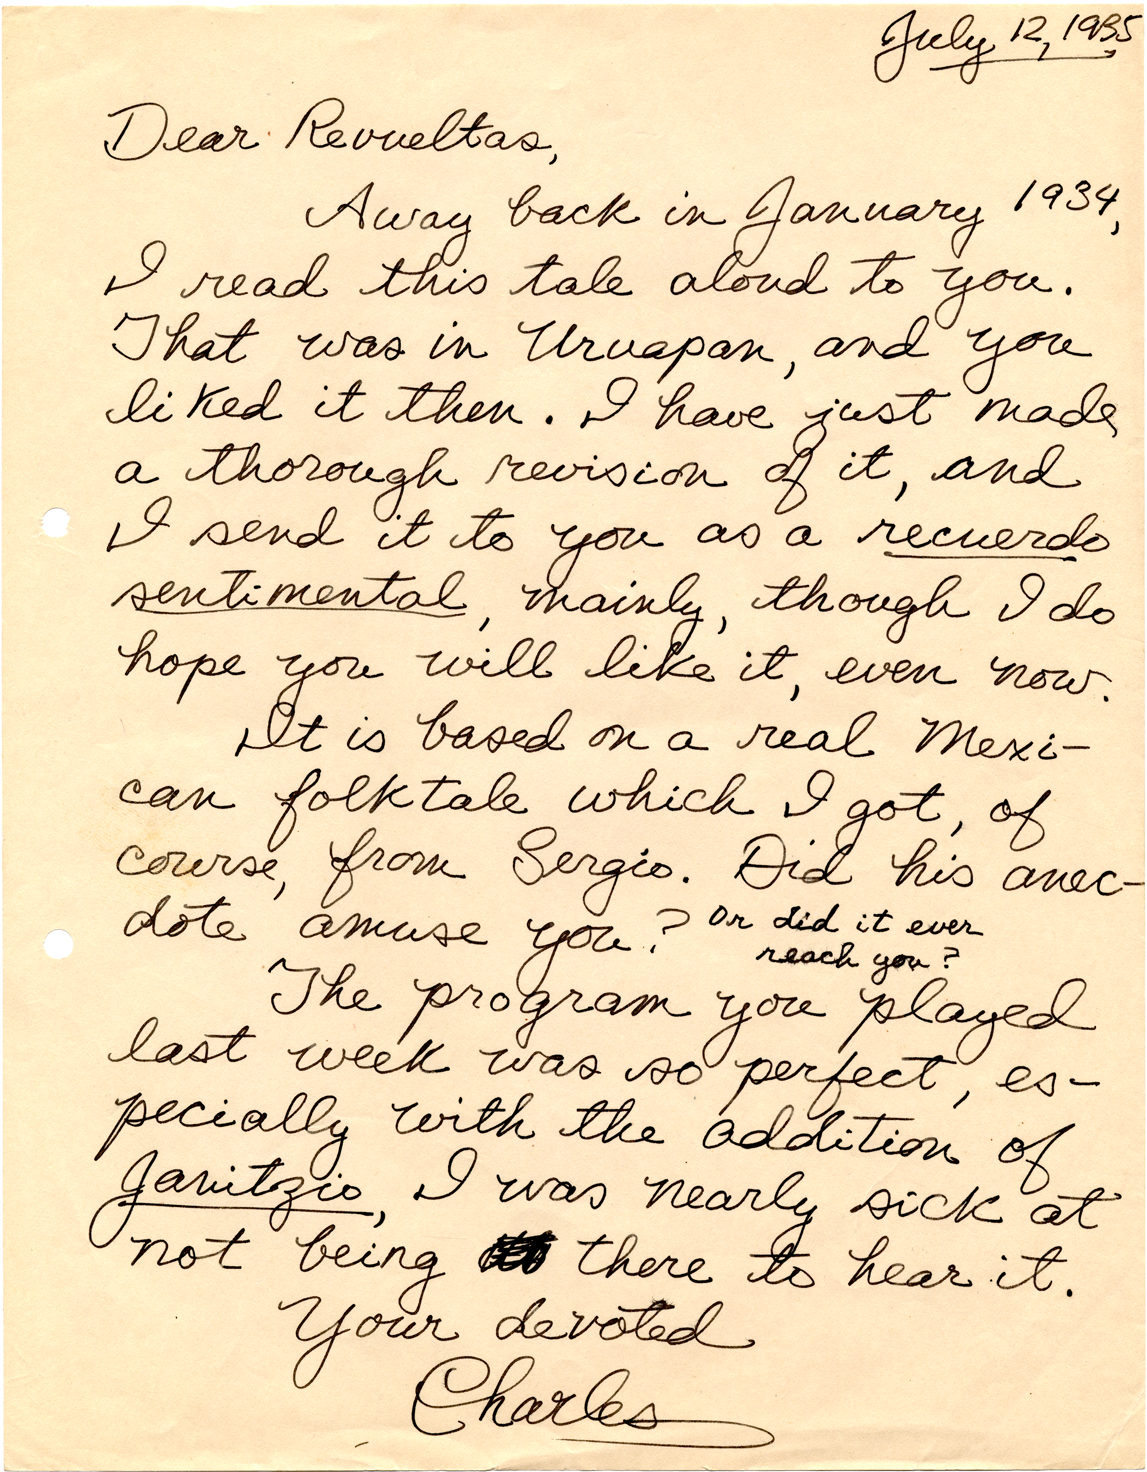 July 12, 1935
Dear Revueltas,
Away back in January 1934,
I read this tale aloud to you.
That was in Uruapan, and you
liked it then. I have just made
a thorough revision of it, and
I send it to you as a recuerdo
sentimental, mainly, though I do
hope you will like it, even now.
It is based on a real Mexi-
can folktale which I got, of
course, from Sergio. Did his anec-
dote amuse you? Or did it ever
reach you?
The program you played
last week was so perfect, es-
pecially with the addition of
Janitzio, I was nearly sick at
not being there to hear it.
Your devoted
Charles